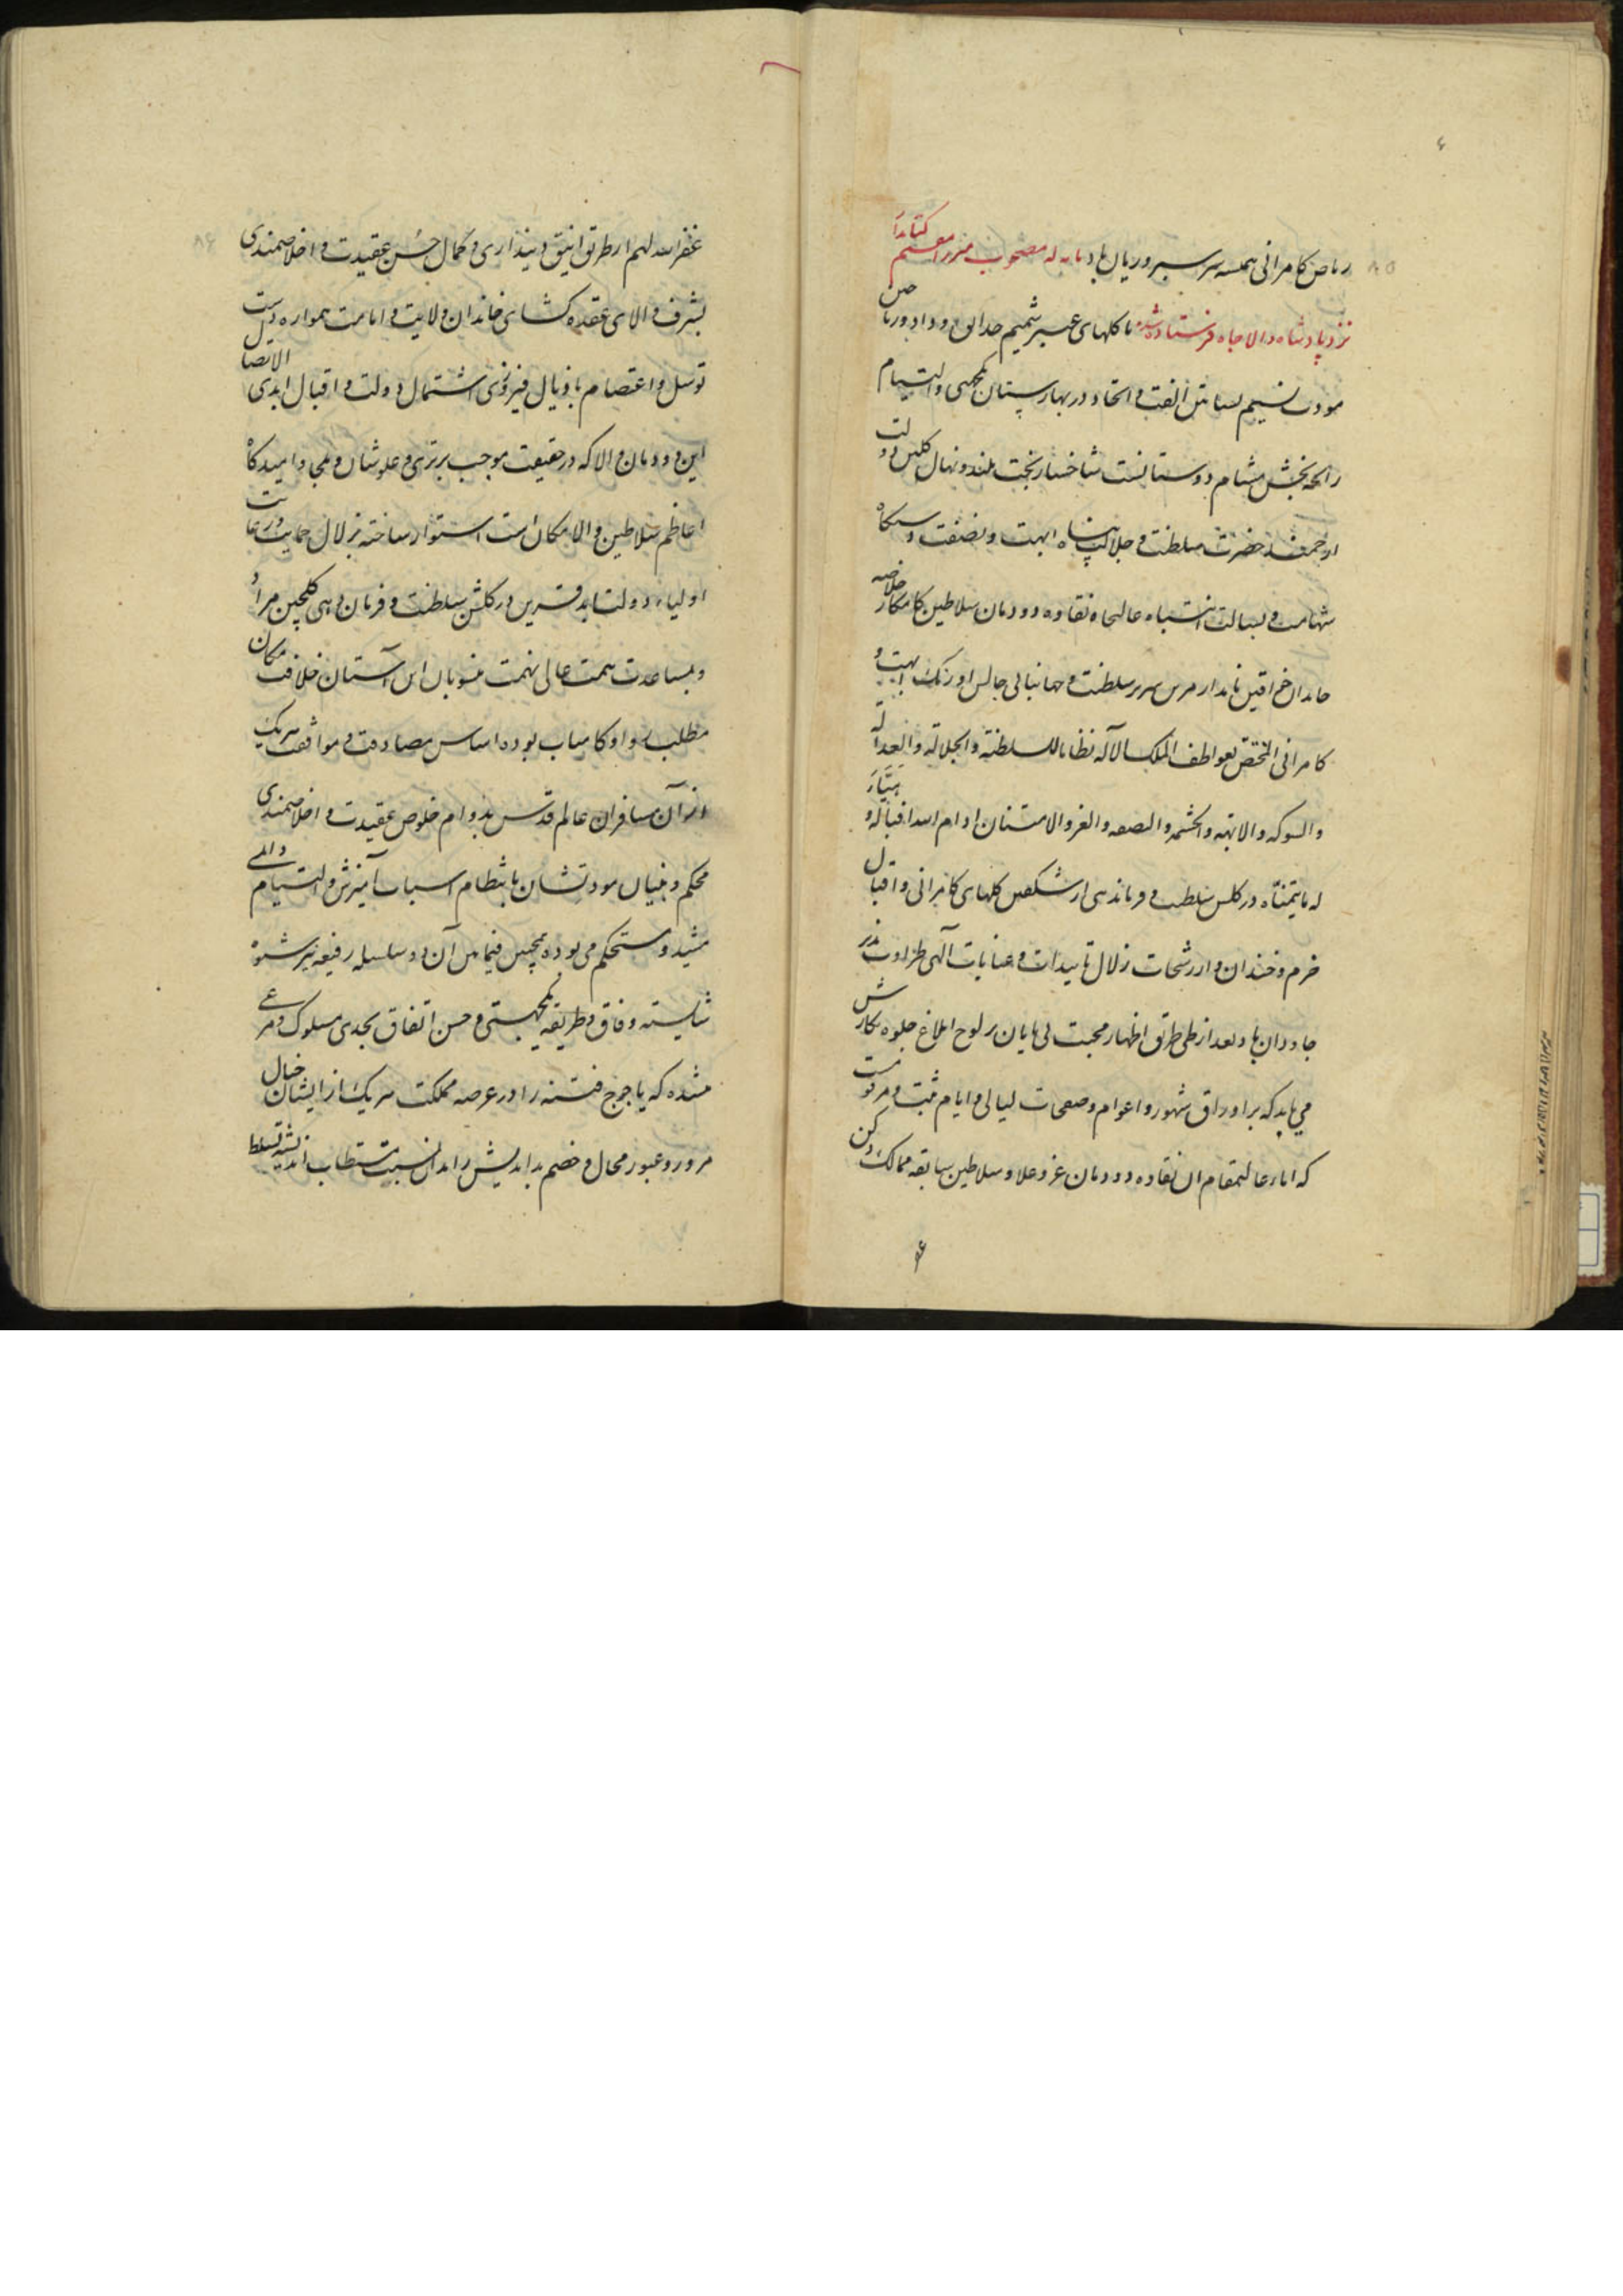 ریاض کامرانی همیشه سرسبز و ریان باد مصحوب میرزا مقیم کتابدار
نزد پادشاه والاجاه فرستاده شد تا گلهای عبیر شمیم حدایق وداد و ریاض
مودت نسیم بساتین الفت و اتحاد در بهارستان یکجهتی و التیام
رایحه بخش مشام دوستانست شاخسار بخت بلند و نهال گلبن دولت
ارجمند حضرت سلطنت و جلالت پناه ابهت و نصفت دستگاه
شهامت و بسالت انتباه عالیجاه نقاوه دودمان سلاطین کامکار خلاصه
خاندان خواقین نامدار سریر سلطنت و جهانبانی جالس اورنگ ابهت و
کامرانی المختص بعواطف الملک الاله نظاما للسلطنة و الجلالة و العدالة
و الشوکة و الابهة و الحشمة و النصفة و العز و الامتنان ادام الله اقباله و
له ما یتمناه در گلشن سلطنت و فرماندهی از شکفتن گلهای کامرانی و اقبال
خرم و خندان و از رشحات زلال تاییدات و عنایات آلهی طراوت پذیر
جاودان باد بعد از طی طریق اظهار محبت بی پایان بر لوح ابلاغ جلوه نگارش
می یابد که بر اوراق شهور و اعوام و صفحات لیالی و ایام ثبت و مرقومست
که آباء عالیمقام آن نقاوه دودمان عز و علا و سلاطین سابقه ممالک دکن
غفر الله لهم از طریق انیق دینداری و کمال حسن عقیدت و اخلاصمندی
بشرف والای عقده کشای خاندان ولایت و امامت همواره دست
توسل و اعتصام باذیال فیروزی اشتمال دولت و اقبال ابدی الاتصال
این دودمان والا که در حقیقت موجب برتری و علو شان و ملجا و امیدگاه
اعاظم سلاطین والا مکان است استوار ساخته بزلال حمایت و رعایت
اولیاء دولت ابد قرین در گلشن سلطنت و فرمان دهی گلچین مراد
و بمساعدت همت عالی نهمت منسوبان این آستان خلافت مکان
مطلب روا و کامیاب بوده اساس مصادقت و موافقت هریک
از آن مسافران عالم قدس بدوام خلوص عقیدت و اخلاصمندی
محکم و بنیان مودتشان بانتظام اسباب آمیزش و التیام والی
مشید و مستحکم می بوده همچنین فیمابین آن دو سلسله رفیعه نیز شیوه
شایسته وفاق و طریقه یکجهتی و حسن اتفاق بجدی مسلوک و مرعی
میشده که یاجوج فتنه را در عرصه مملکت هریک از ایشان خیال
مرور و عبور محال و خصم بداندیش را بدان نسبت مستطاب اندیشه تسلط